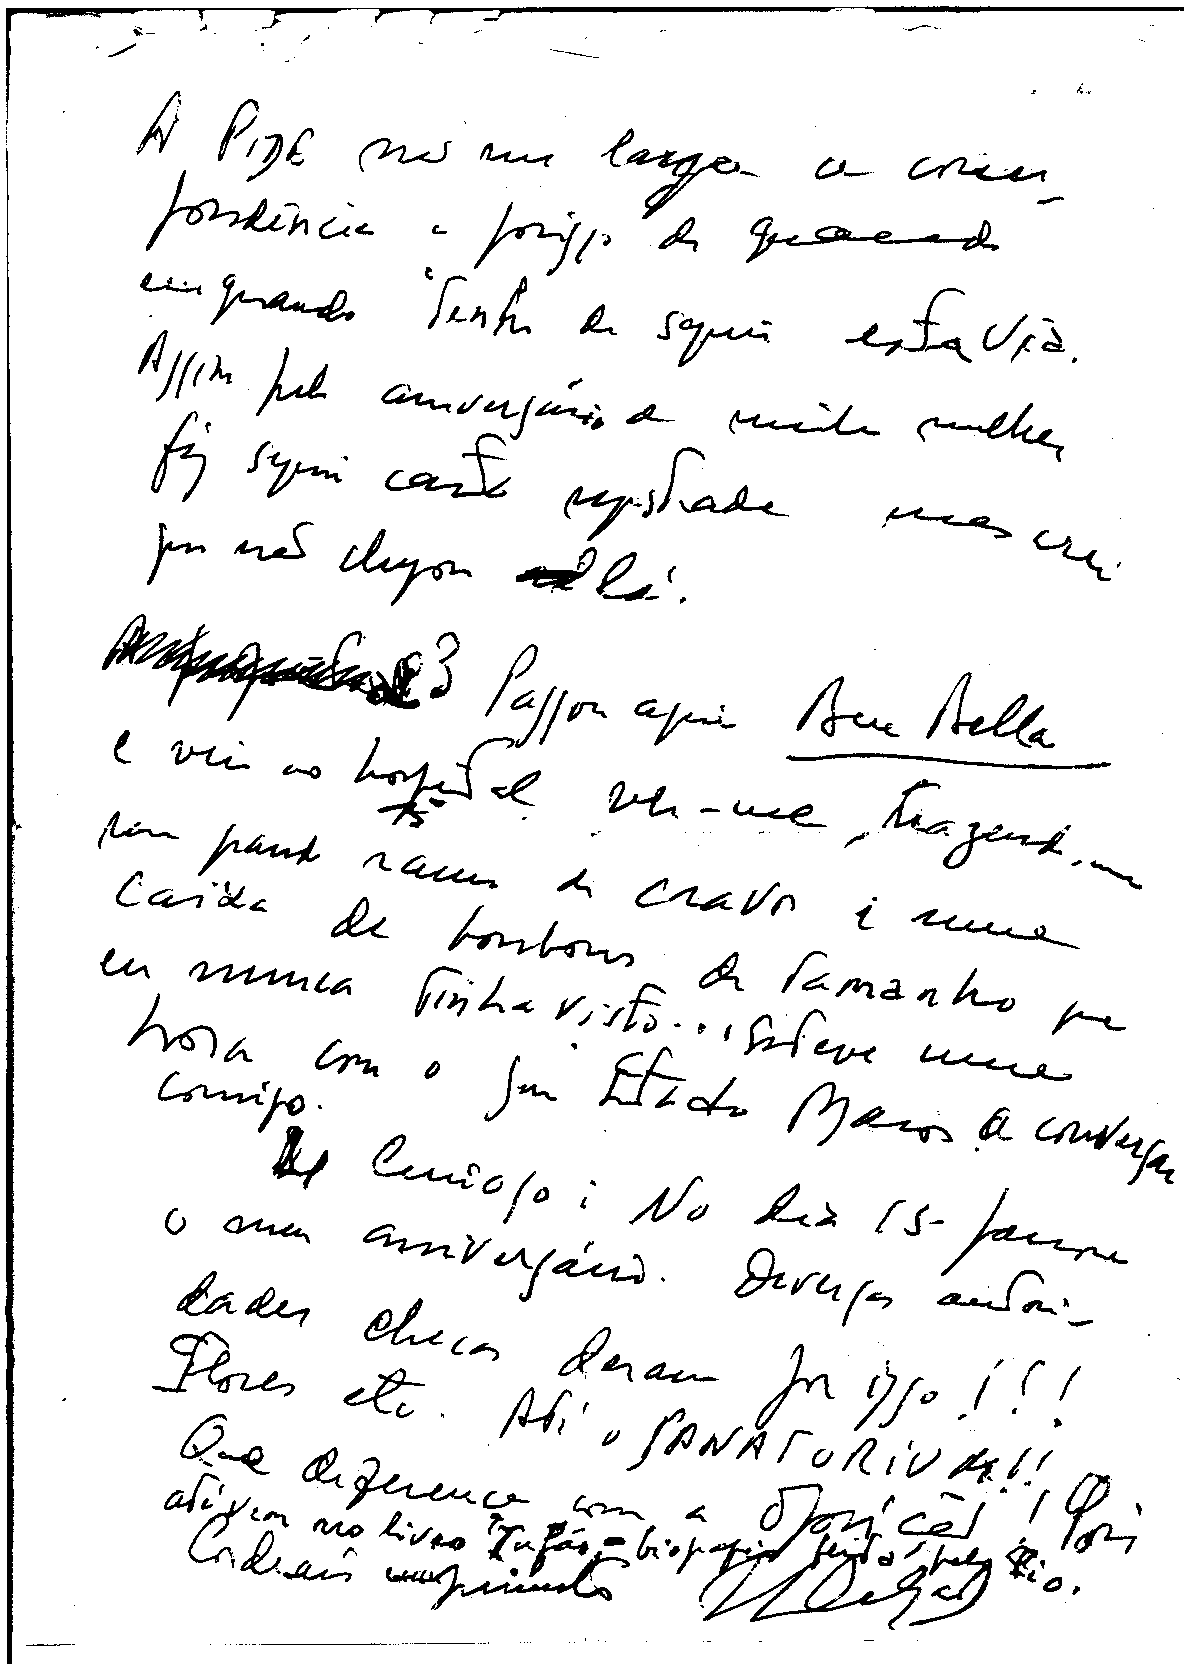 A PIDE não me larga a corres-
pondência e por isso de quando
em quando tenho de seguir esta via.
Assim pelo aniversário de minha mulher
fiz seguir carta registada mas creio
que não chegou lá.
3 Passou aqui Ben Bella
e veio ao hospital ver-me, trazendo-me
um grande ramo de cravos e uma
caixa de bombons de tamanho que
eu nunca tinha visto... Esteve uma
hora com o seu Estado Maior a conversar
comigo.
Curioso: No dia 15 passou
o meu aniversário. Diversas autori-
dades checas deram por isso!!!
Flores etc. Até o SANATORIUM!!
Que diferença com a oposição! Pois
até vem no livro biografia feita pelo Rio.
Cordeais cumprimentos